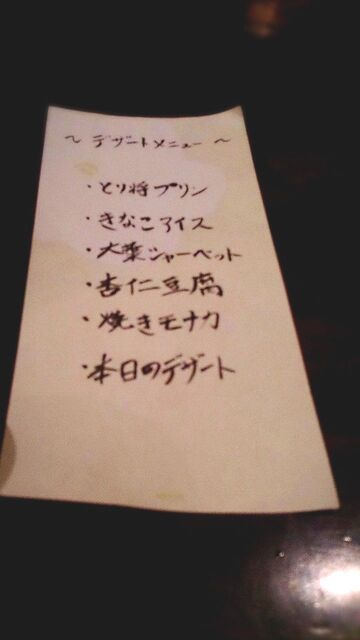 ～ デザートメニュー ～
・とり将プリン
・きなこアイス
・大葉シャーベット
・杏仁豆腐
・焼きモナカ
・本日のデザート